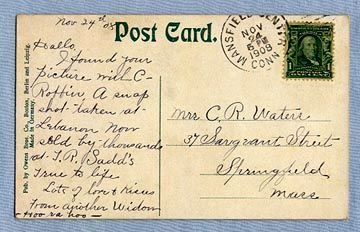 Nov 24th 08
Post Card.
MANSFIELD CENTER
NOV
24
6 PM
1908
CONN.
Hallo.
I found your
picture with C-
Roffin A snap
shot taken at
Lebanon Now
sold by thousands
at T.R. Sadd's
True to life
Lots of love & Kisses
From another Widow
Hoo ra hoo -
Mrs C. R. Waters
37 Sargeant Street
Springfield
Mass
Pub. by Owens Bros. Co., Boston, Berlin and Leipzig.
Made in Germany.